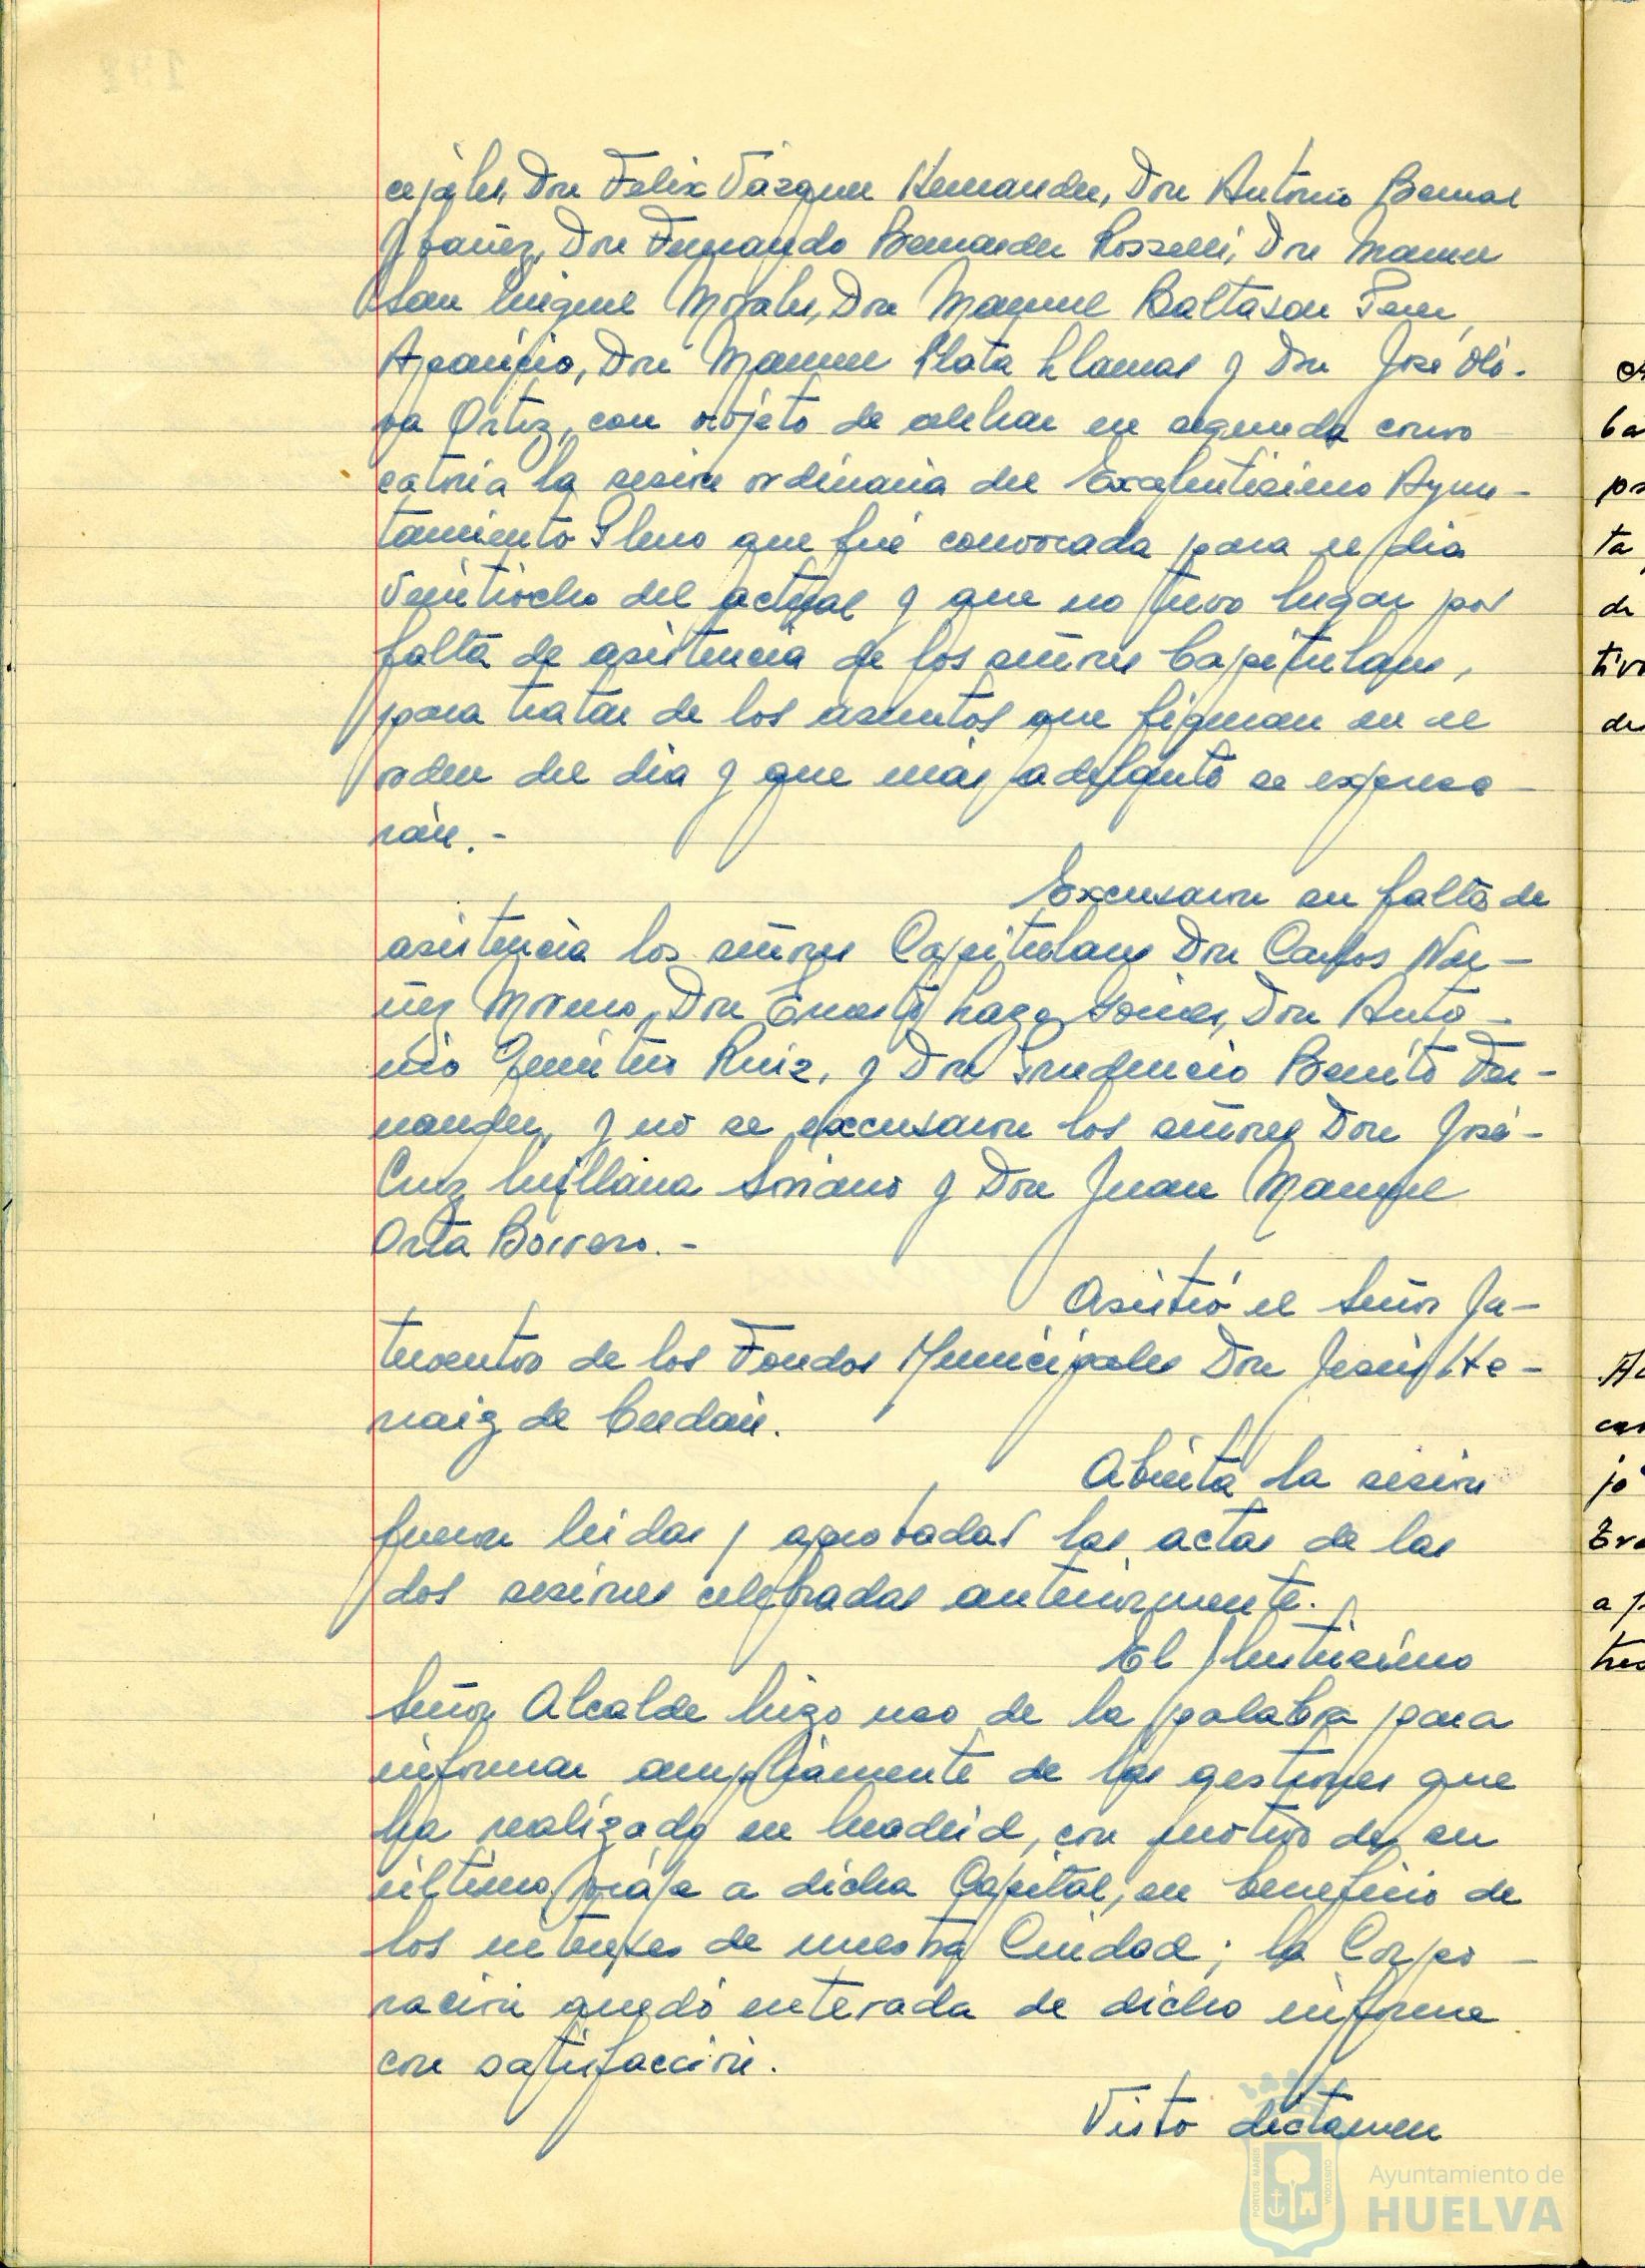 cejales, Don Felix Vázquez Hernandez, Don Antonio Bernal
Ybañez, Don Fernando Bernardez Rosselli, Don Manuel
San Miguel Morales, Don Manuel Baltasar Perez
Aparicio, Don Manuel Plata Llamas y Don José Oli-
va Ortiz, con objeto de celebrar en segunda convo
catoria la sesion ordinaria del Excelentisimo Ayun-
tamiento Pleno que fué convocada para el dia
veintiocho del actual y que no tuvo lugar por
falta de asistencia de los señores Capitulares,
para tratar de los asuntos que figuran en el
orden del dia y que más adelante se expresa
rán.-
Excusaron su falta de
asistencia los señores Capitulares Don Carlos Nú-
ñez Moreno, Don Ernesto Lazo Gomez, Don Anto-
nio Ruiz, y Don Prudencio Benito Fer-
nandez, y no se excusaron los señores Don José-
Cruz Millana Soriano y Don Juan Manuel
Orta Borrero.-
Asistió el Señor In-
terventor de los Fondos Municipales Don Jesús He-
raiz de Cerdán.
Abierta la sesion
fueron leidas y aprobadas las actas de las
dos sesiones celebradas anteriormente.
El Ilustrisimo
Señor Alcalde hizo uso de la palabra para
informar ampliamente de las gestiones que
ha realizado en Madrid, con motivo de su
último viaje a dicha Capital, en beneficio de
los intereses de nuestra Ciudad; la Corpo-
racion quedó enterada de dicho informe
con satisfaccion.
Visto dictamen
Ayuntamiento de
HUELVA